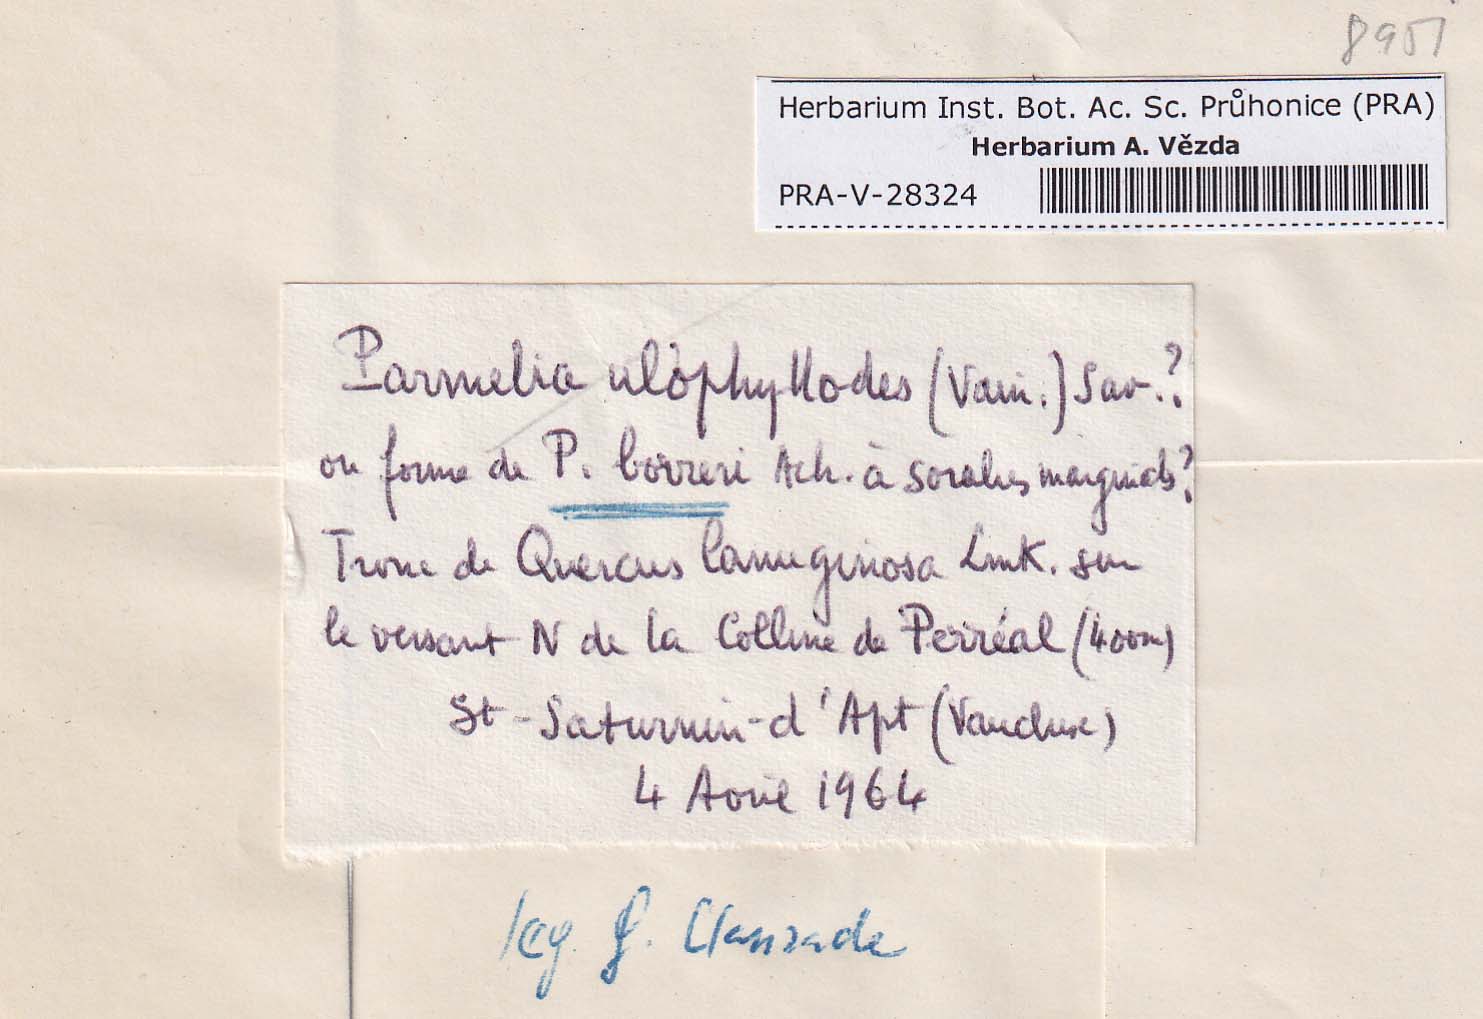 8951
Herbarium Inst. Bot. Ac. Sc. Průhonice (PRA)
Herbarium A. Vězda
PRA-V-28324
Parmelia ulophyllodes (Vain.) Sav.?
ou forme de P. borreri Ach. à soralies marginales?
Tronc de Quercus lanuginosa Lmk. sur
le versant N de la Colline de Perréal (400m)
St-Saturnin-d'Apt (Vaucluse)
4 Août 1964
leg. G. Clauzade